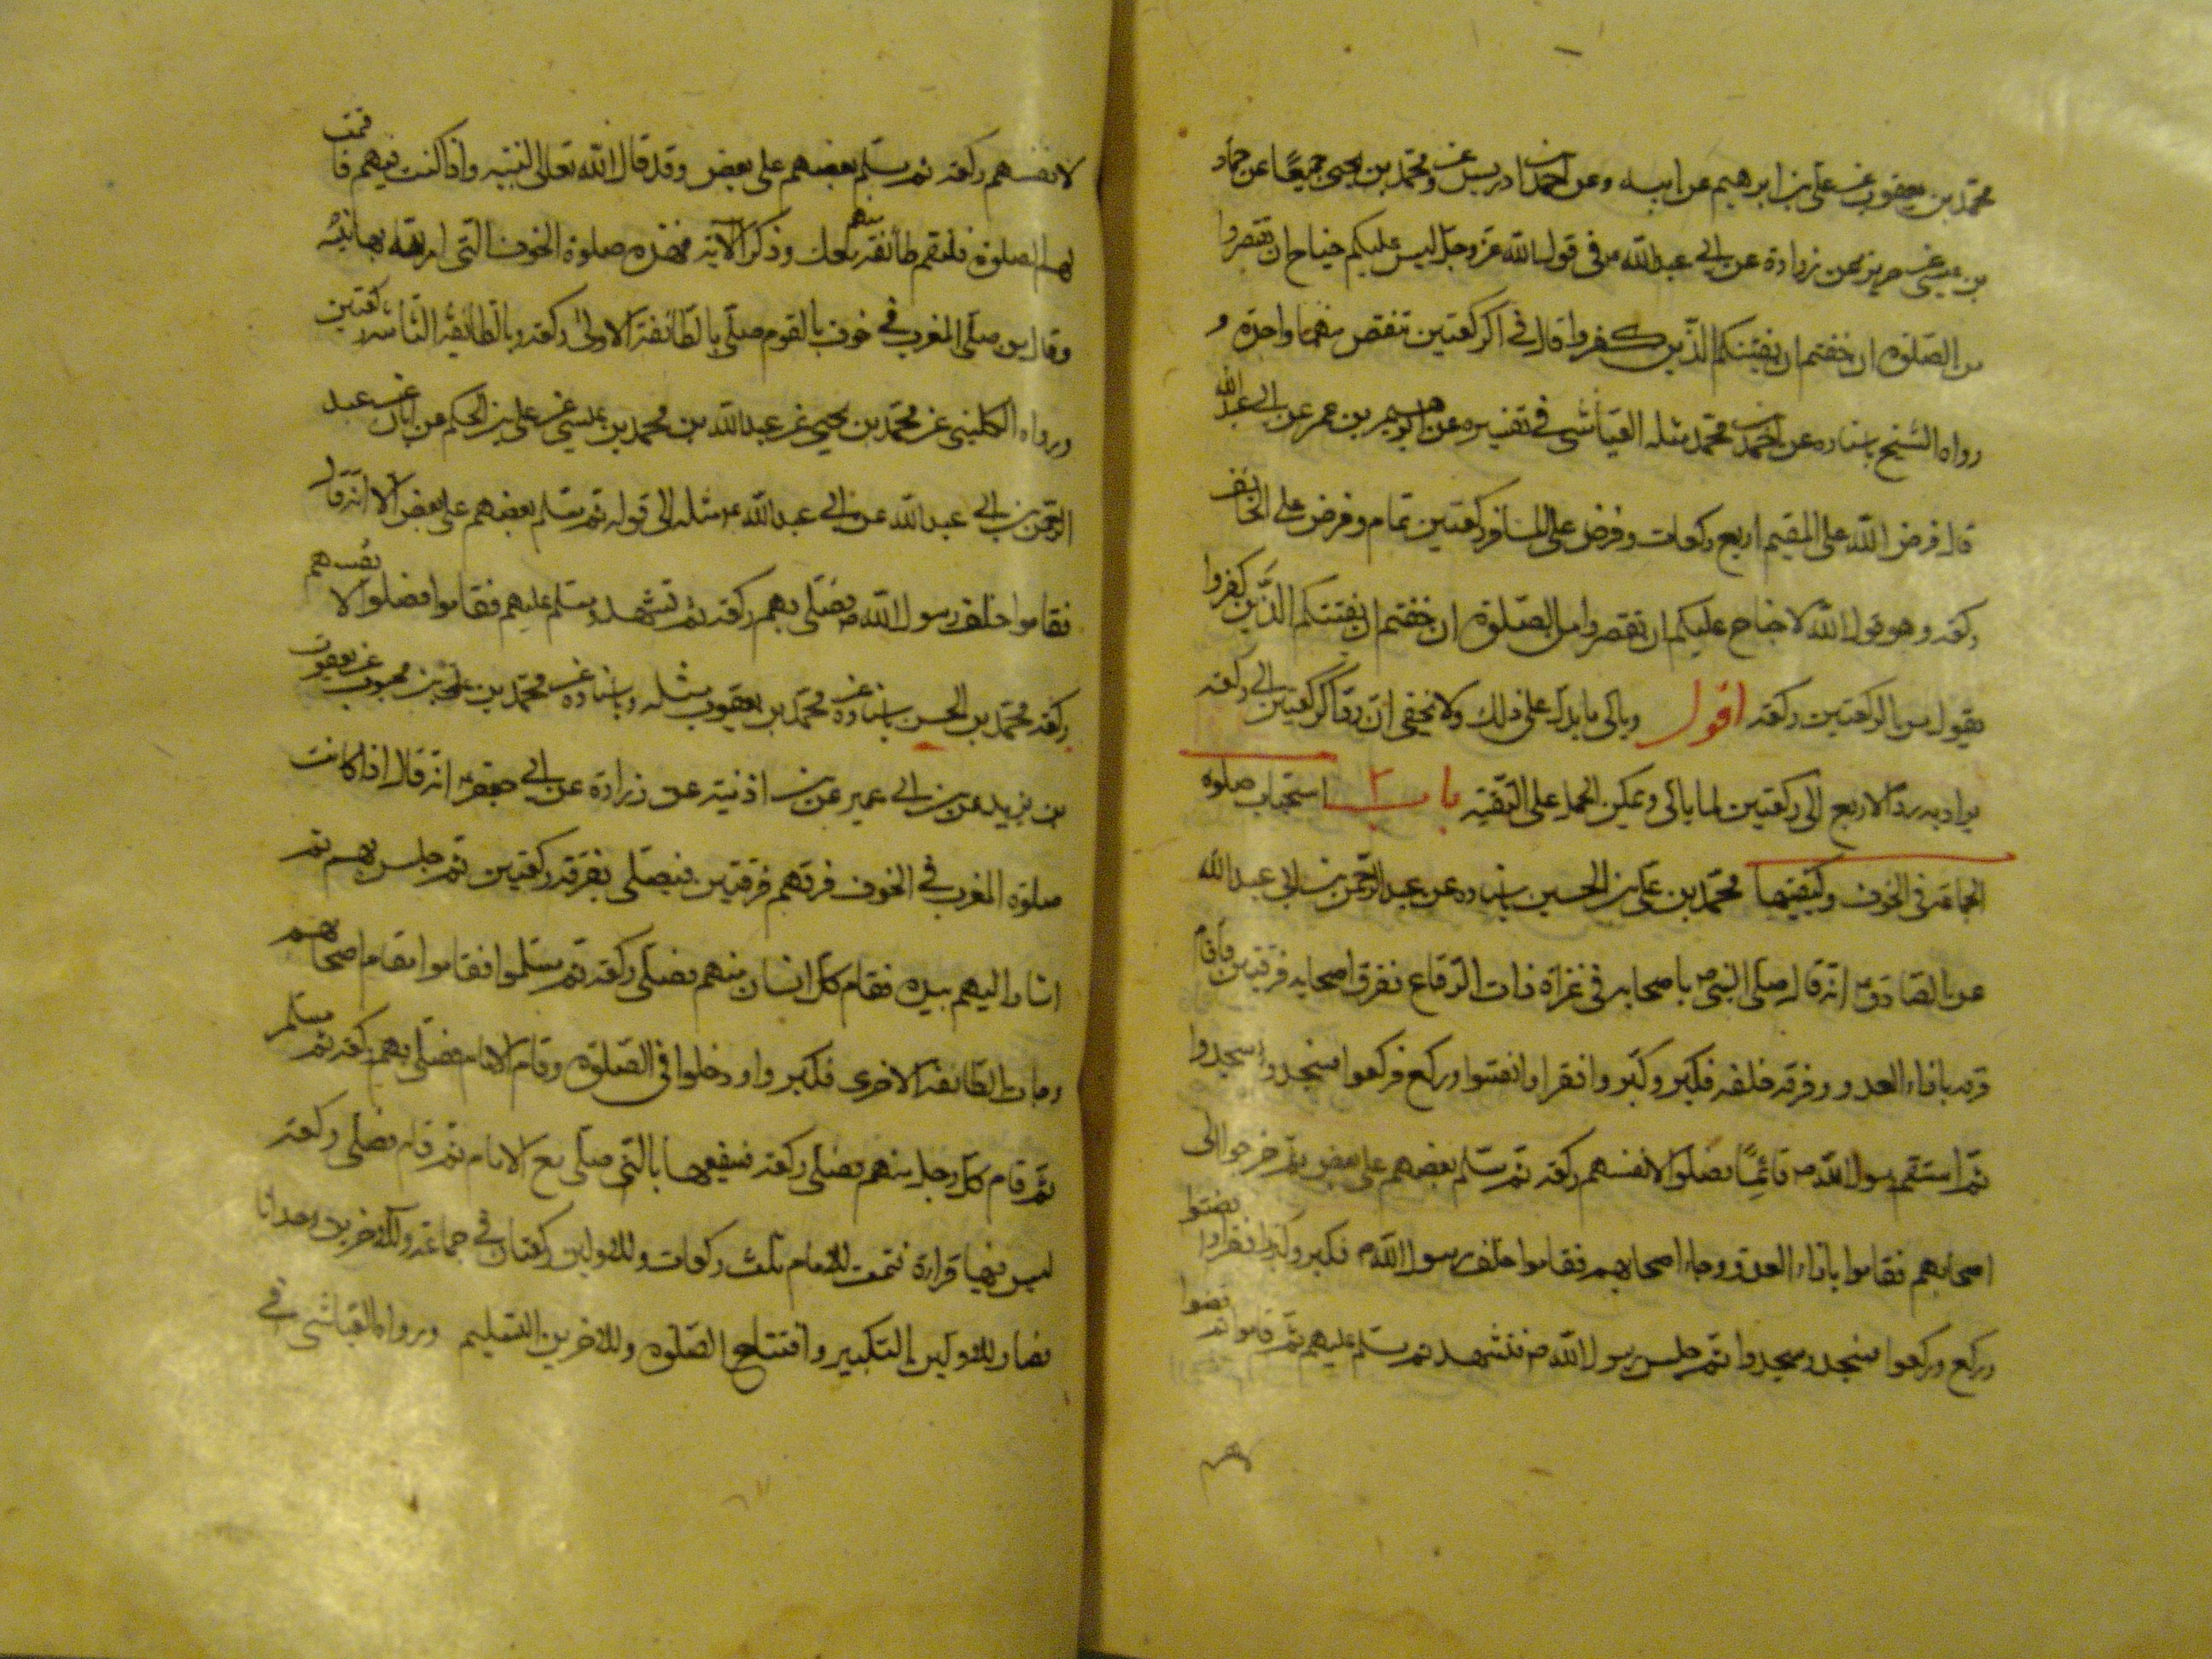 محمد بن يعقوب عن علي بن ابرهيم عن ابيه وعن احمد بن ادريس عن ومحمد بن يحيى جميعًا عن حماد
بن عيسى عن حريز عن زرارة عن ابي عبد الله ع في قول الله عز وجل ليس عليكم جناح ان تقصروا
من الصلوة ان خفتم ان يفتنكم الذين كفروا قال في الركعتين تنقص منهما واحدة و
رواه الشيخ باسناده عن احمد بن محمد مثله العياشي في تفسيره عن ابرهيم بن عمر عن ابي عبد الله
قال فرض الله على المقيم اربع ركعات وفرض على المسافر ركعتين تمام وفرض على الخائف
ركعة وهو قول الله لا جناح عليكم ان تقصروا من الصلوة ان خفتم ان يفتنكم الذين كفروا
يقول من الركعتين ركعة اقول وياتي ما يدل على ذلك ولا يخفى ان رد الركعتين الى ركعة
يراد به رد الاربع الى ركعتين لما ياتي ويمكن الحمل على التقية باب ٢ استحباب صلوة
الجماعة في الخوف وكيفيتها محمد بن علي بن الحسين باسناده عن عبد الرحمن بن ابي عبد الله
عن الصادق ع انه قال صلى النبي ص باصحابه في غزاة ذات الرقاع ففرق اصحابه فرقتين فاقام
فرقة بازاء العدو وفرقة خلفه فكبر وكبروا فقرا وانصتوا وركع فركعوا فسجد وسجدوا
ثم استتم رسول الله ص قائمًا فصلوا لانفسهم ركعة ثم سلم بعضهم على بعض ثم خرجوا الى
اصحابهم فقاموا بازاء العدو وجاء اصحابهم فقاموا خلف رسول الله ص فكبر وكبروا فقرا وانصتوا
وركع وركعوا فسجد وسجدوا ثم جلس رسول الله ص فتشهد ثم سلم عليهم ثم قاموا ثم قضوا
لانفسهم ركعة ثم سلم بعضهم على بعض وقد قال الله تعالى لنبيه واذا كنت فيهم فاقمت
لهم الصلوة فلتقم طائفة منهم معك وذكر الآية فهذه صلوة الخوف التي امر الله بها نبيه
وقال من صلى المغرب في خوف بالقوم صلى بالطائفة الاولى ركعة وبالطائفة الثانية ركعتين
ورواه الكليني عن محمد بن يحيى عن عبد الله بن محمد بن عيسى عن علي بن الحكم عن ابان عن عبد
الرحمن بن ابي عبد الله عن ابي عبد الله ع مثله الى قوله ثم سلم بعضهم على بعض الا انه قال
فقاموا خلف رسول الله ص فصلى بهم ركعة ثم تشهد وسلم عليهم فقاموا فصلوا لانفسهم
ركعة محمد بن الحسن باسناده عن محمد بن يعقوب مثله وباسناده عن محمد بن علي بن محبوب عن يعقوب
بن يزيد عن بن ابي عمير عن بن اذينة عن زرارة عن ابي جعفر ع انه قال اذا كانت
صلوة المغرب في الخوف فرقهم فرقتين فيصلي بفرقة ركعتين ثم جلس بهم ثم
اشار اليهم بيده فقام كل انسان منهم فصلى ركعة ثم سلموا فقاموا مقام اصحابهم
وجاءت الطائفة الاخرى فكبروا ودخلوا في الصلوة وقام الامام فصلى بهم ركعة ثم سلم
ثم قام كل رجل منهم فصلى ركعة فشفعها بالتي صلى مع الامام ثم قام فصلى ركعة
ليس فيها قراءة فتمت للامام ثلث ركعات وللاولين ركعتان في جماعة وللآخرين وحدانا
فصار للاولين التكبير وافتتاح الصلوة وللاخرين التسليم ورواه العياشي في